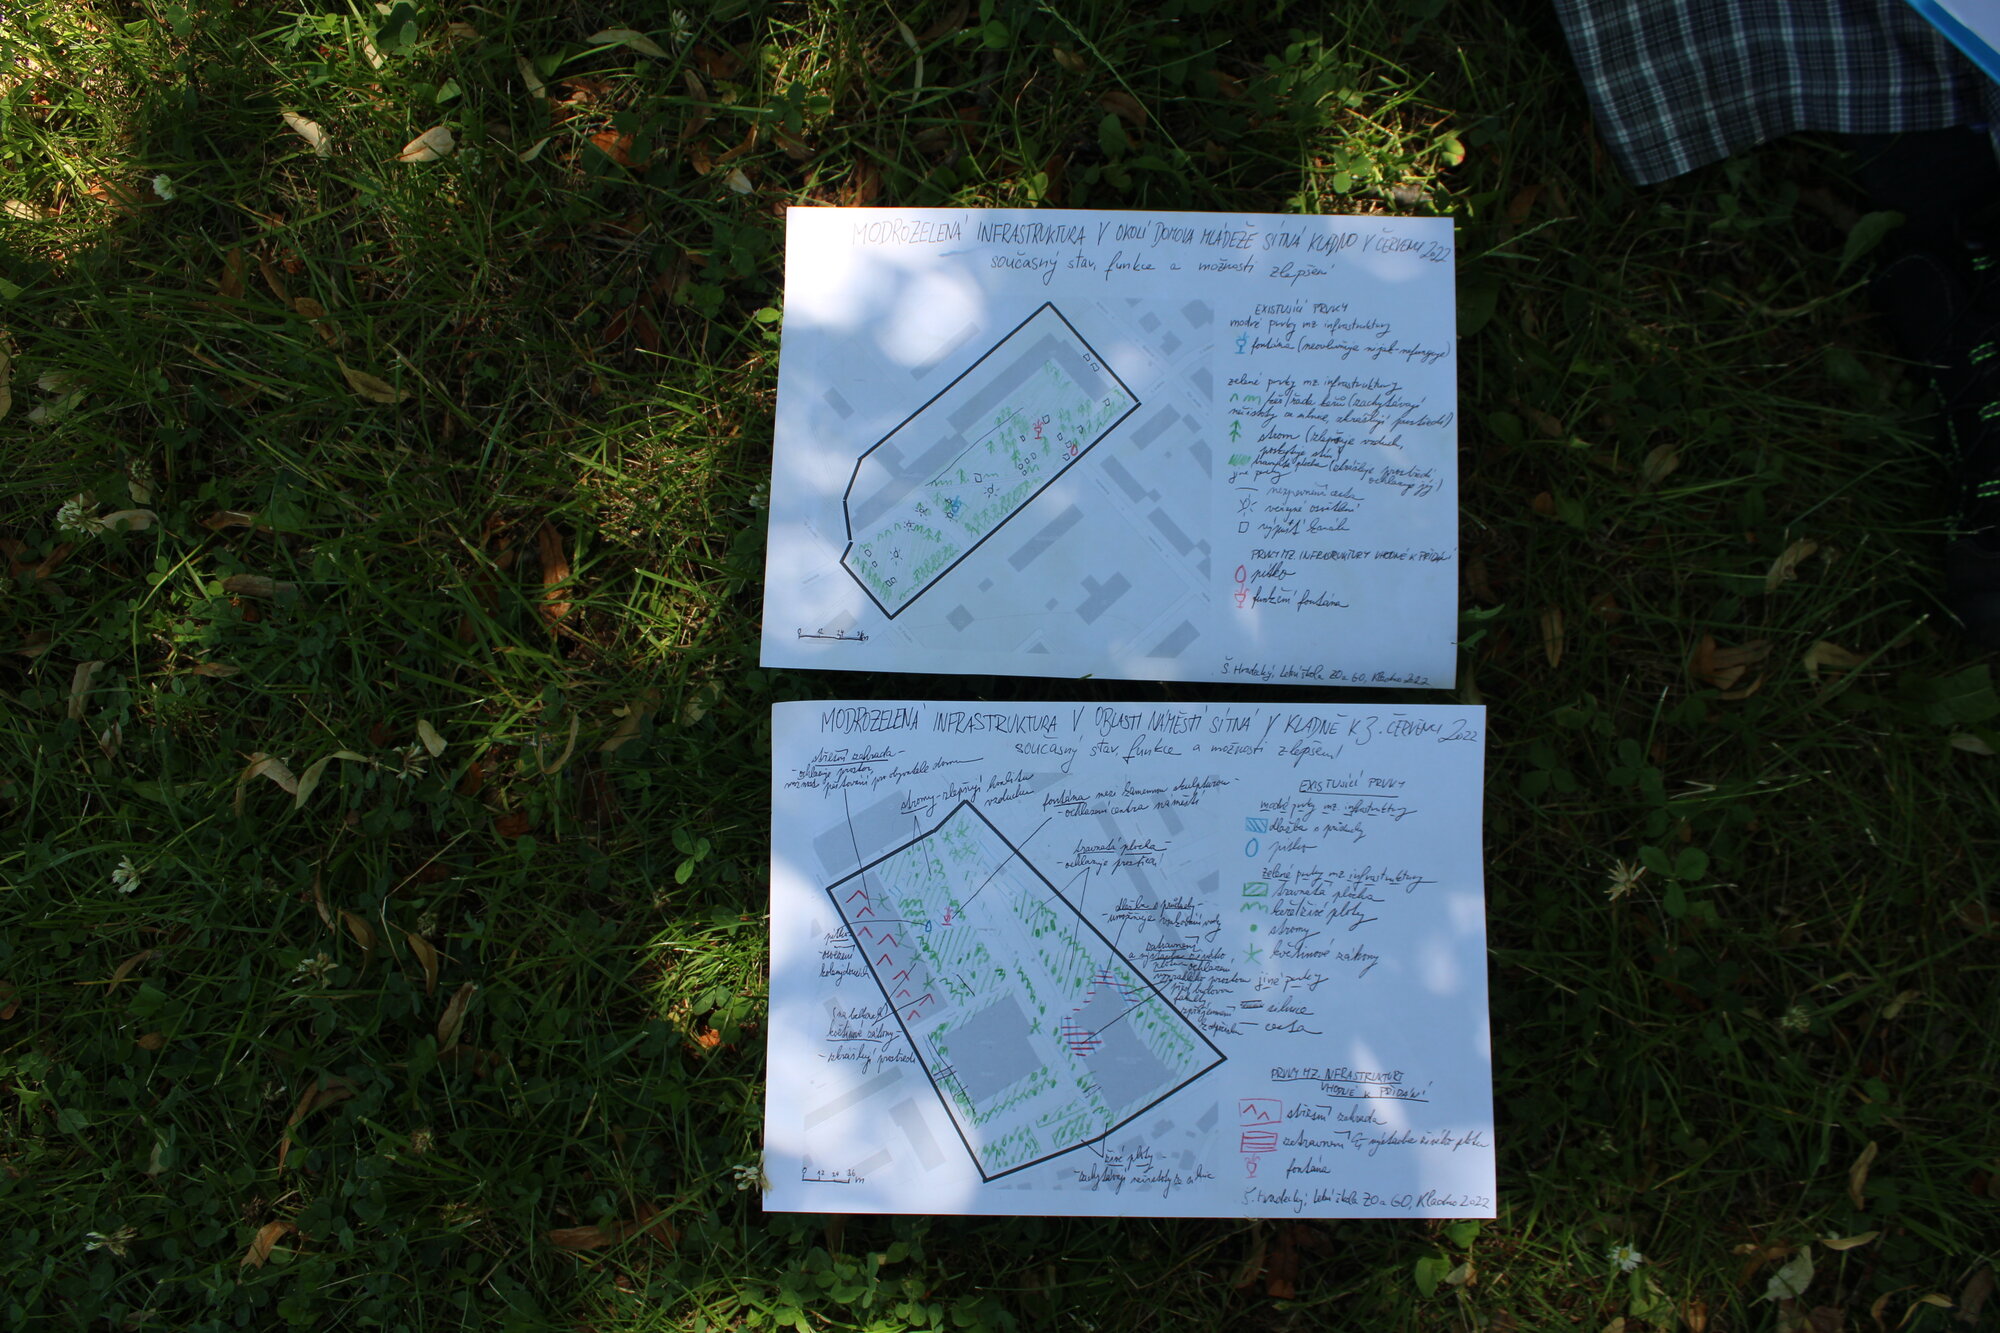 MODROZELENÁ INFRASTRUKTURA V OKOLÍ DOMOVA MLÁDEŽE SÍTNÁ KLADNO V ČERVENCI 2022
současný stav, funkce a možnosti zlepšení
EXISTUJÍCÍ PRVKY
modré prvky mz. infrastruktury
fontána (neovlivňuje nijak - nefunguje)
zelené prvky mz. infrastruktury
keř/řada keřů (zachytávají
nečistoty ze silnice, zkrášlují prostředí)
strom (zlepšuje vzduch,
poskytuje stín)
travnatá plocha (zkrášluje prostředí,
ochlazuje jej)
jiné prvky
nezpevněná cesta
veřejné osvětlení
výpusť kanálu
PRVKY MZ. INFRASTRUKTURY VHODNÉ K PŘIDÁNÍ
pítko
funkční fontána
0 12 24 36 m
Š. Hradecký, Letní škola ZO a GO, Kladno 2022
MODROZELENÁ INFRASTRUKTURA V OBLASTI NÁMĚSTÍ SÍTNÁ V KLADNĚ K 3. ČERVENCI 2022
současný stav, funkce a možnosti zlepšení
střešní zahrada -
- ochlazuje prostor,
pěstování pro obyvatele domu
stromy - zlepšují kvalitu
vzduchu
fontána mezi kamennou skulpturou -
- ochlazení centra náměstí
travnatá plocha -
- ochlazuje prostředí
dlažba s průduchy -
- umožňuje vsakování vody
zatravnění
a výstavba živého
plotu - ochlazení
prostoru
před budovou
fakulty
zpříjemnění
vzduchu
pítko -
- osvěžení
kolemjdoucích
(na balkonech)
květinové záhony -
- zkrášlují prostředí
živé ploty -
zachytávají nečistoty ze silnice
EXISTUJÍCÍ PRVKY
modré prvky mz. infrastruktury
dlažba s průduchy
pítko
zelené prvky mz. infrastruktury
travnatá plocha
keře/živé ploty
stromy
květinové záhony
jiné prvky
silnice
cesta
PRVKY MZ. INFRASTRUKTURY
VHODNÉ K PŘIDÁNÍ
střešní zahrada
zatravnění či výstavba živého plotu
fontána
0 12 24 36 m
Š. Hradecký, Letní škola ZO a GO, Kladno 2022